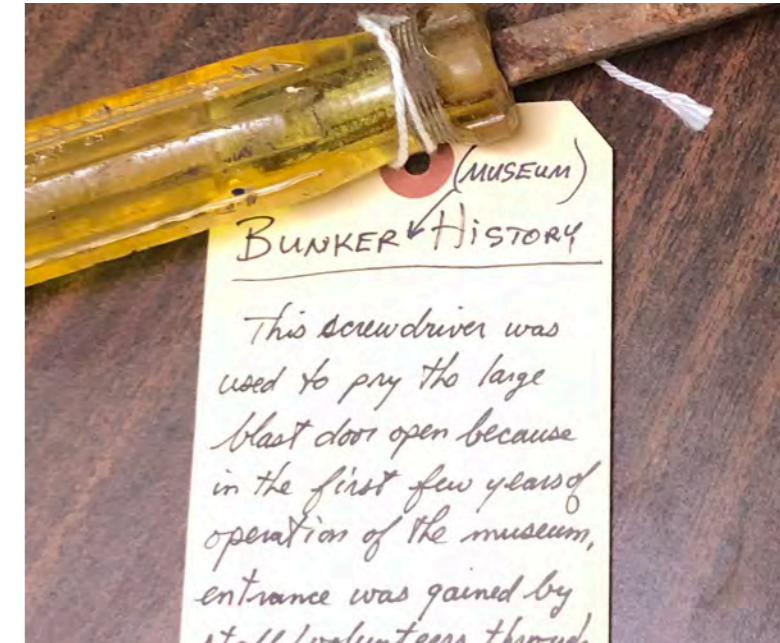 (MUSEUM)
BUNKER HISTORY
This screwdriver was
used to pry the large
blast door open because
in the first few years of
operation of the museum,
entrance was gained by
staff/volunteers through